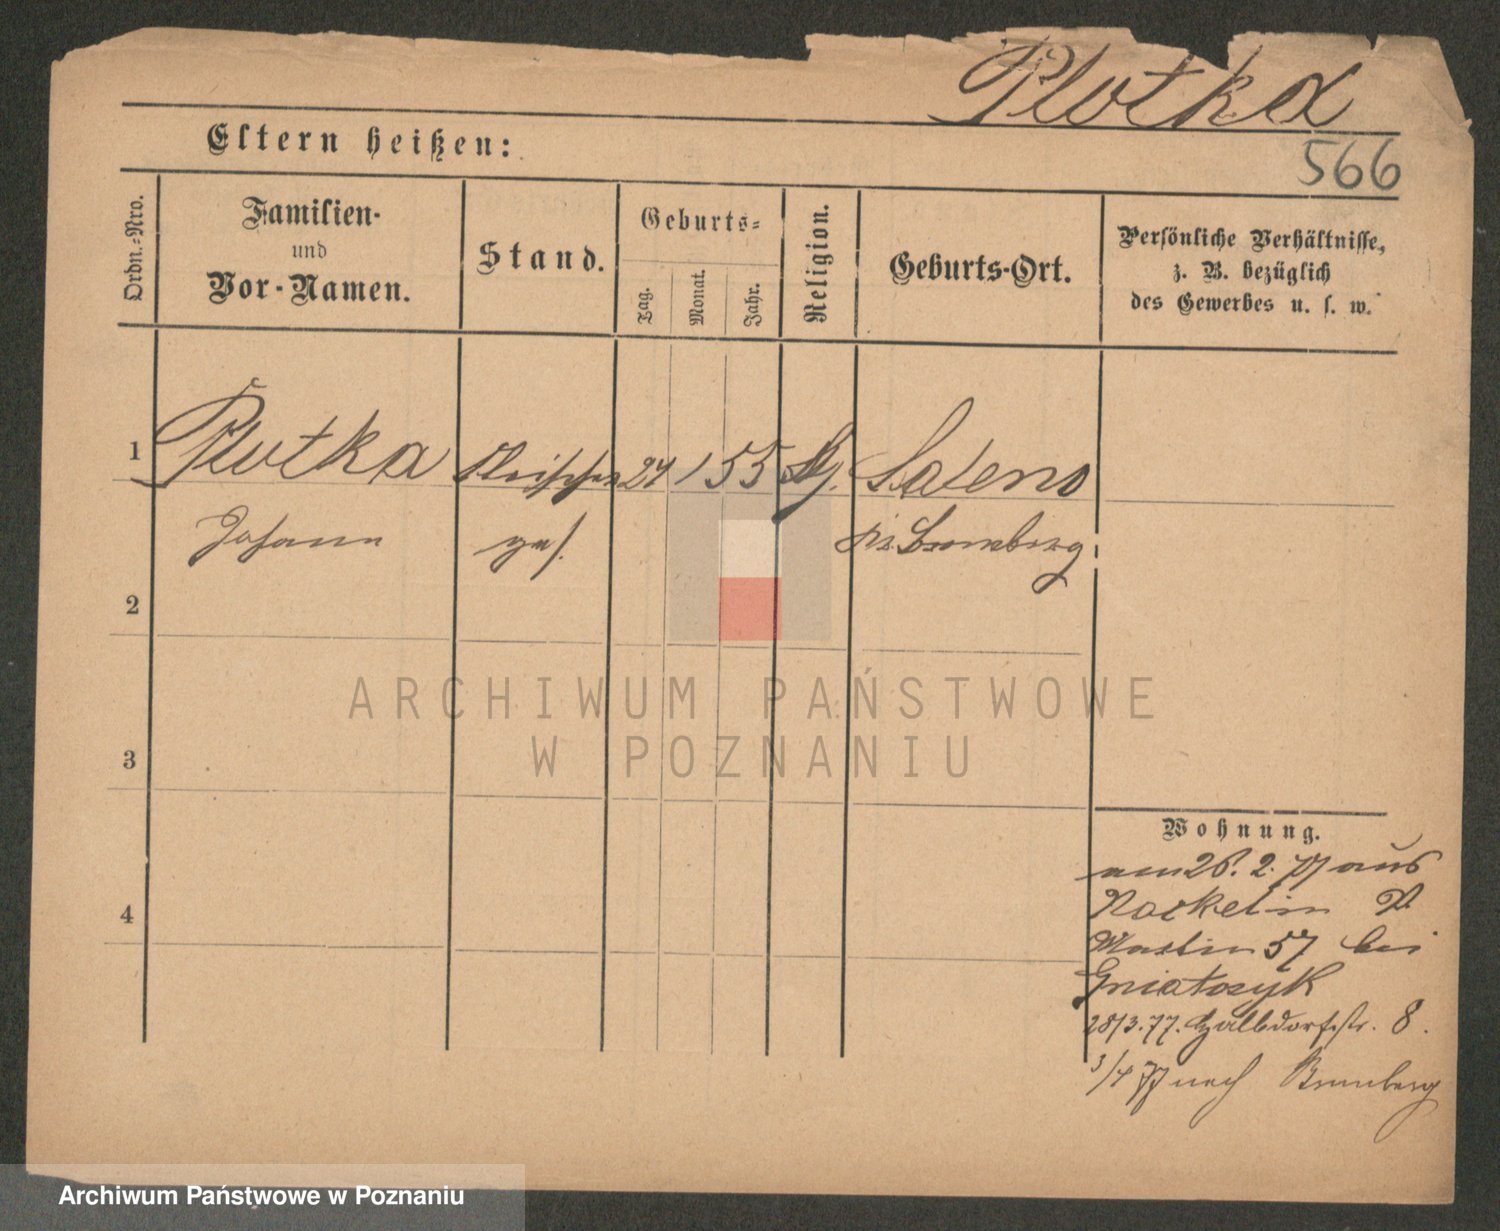 Plotka
566
Eltern heißen:
Ordn.-Nro.
Familien-
und
Vor-Namen.
Stand.
Geburts-
Tag.
Monat.
Jahr.
Religion.
Geburts-Ort.
Persönliche Verhältnisse,
z. B. bezüglich
des Gewerbes u. s. w.
1 Plotka Fleischer 24 1 55 Saleno
Johann ges. Bromberg.
2
3
4
ARCHIWUM PAŃSTWOWE
W POZNANIU
Wohnung.
am 26. 2. 77 aus
Nackel in
Martin 57 bei
Gniatczyk
28/3. 77. Halbdorfstr. 8.
3/4 77 nach Bromberg
Archiwum Państwowe w Poznaniu